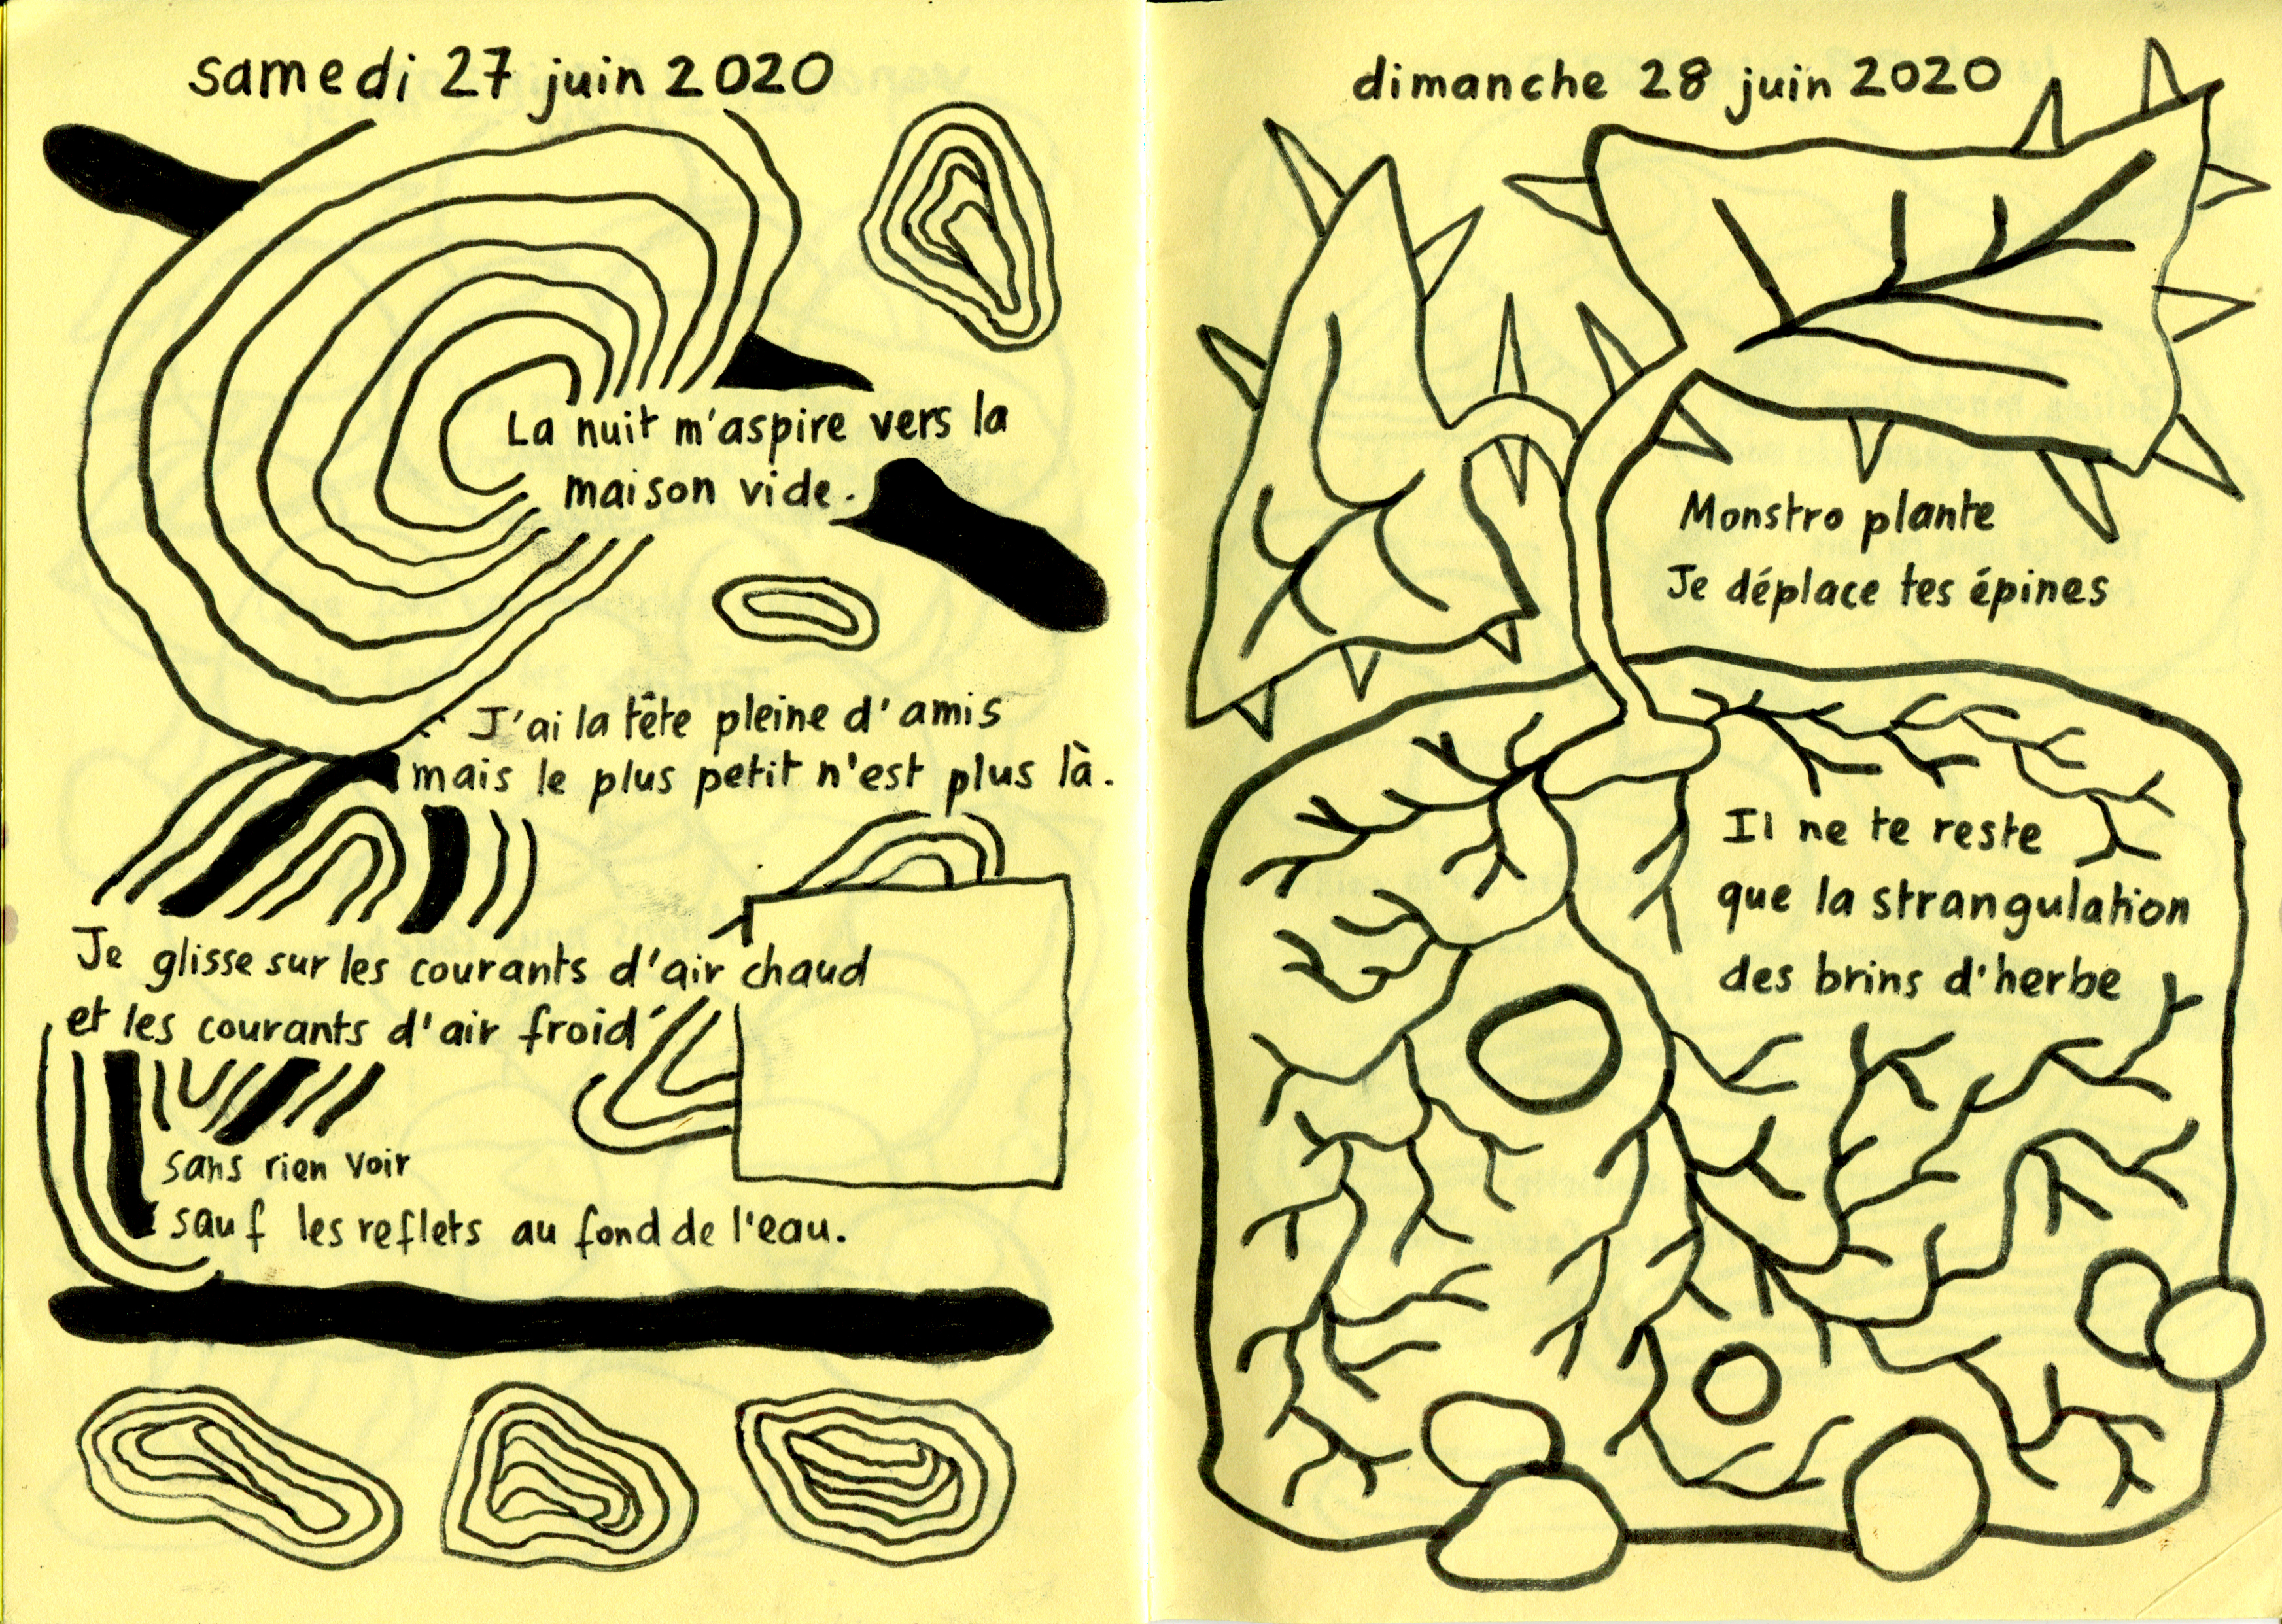 samedi 27 juin 2020
La nuit m'aspire vers la
maison vide.
J'ai la tête pleine d'amis
mais le plus petit n'est plus là.
Je glisse sur les courants d'air chaud
et les courants d'air froid
sans rien voir
sauf les reflets au fond de l'eau.
dimanche 28 juin 2020
Monstro plante
Je déplace tes épines
Il ne te reste
que la strangulation
des brins d'herbe